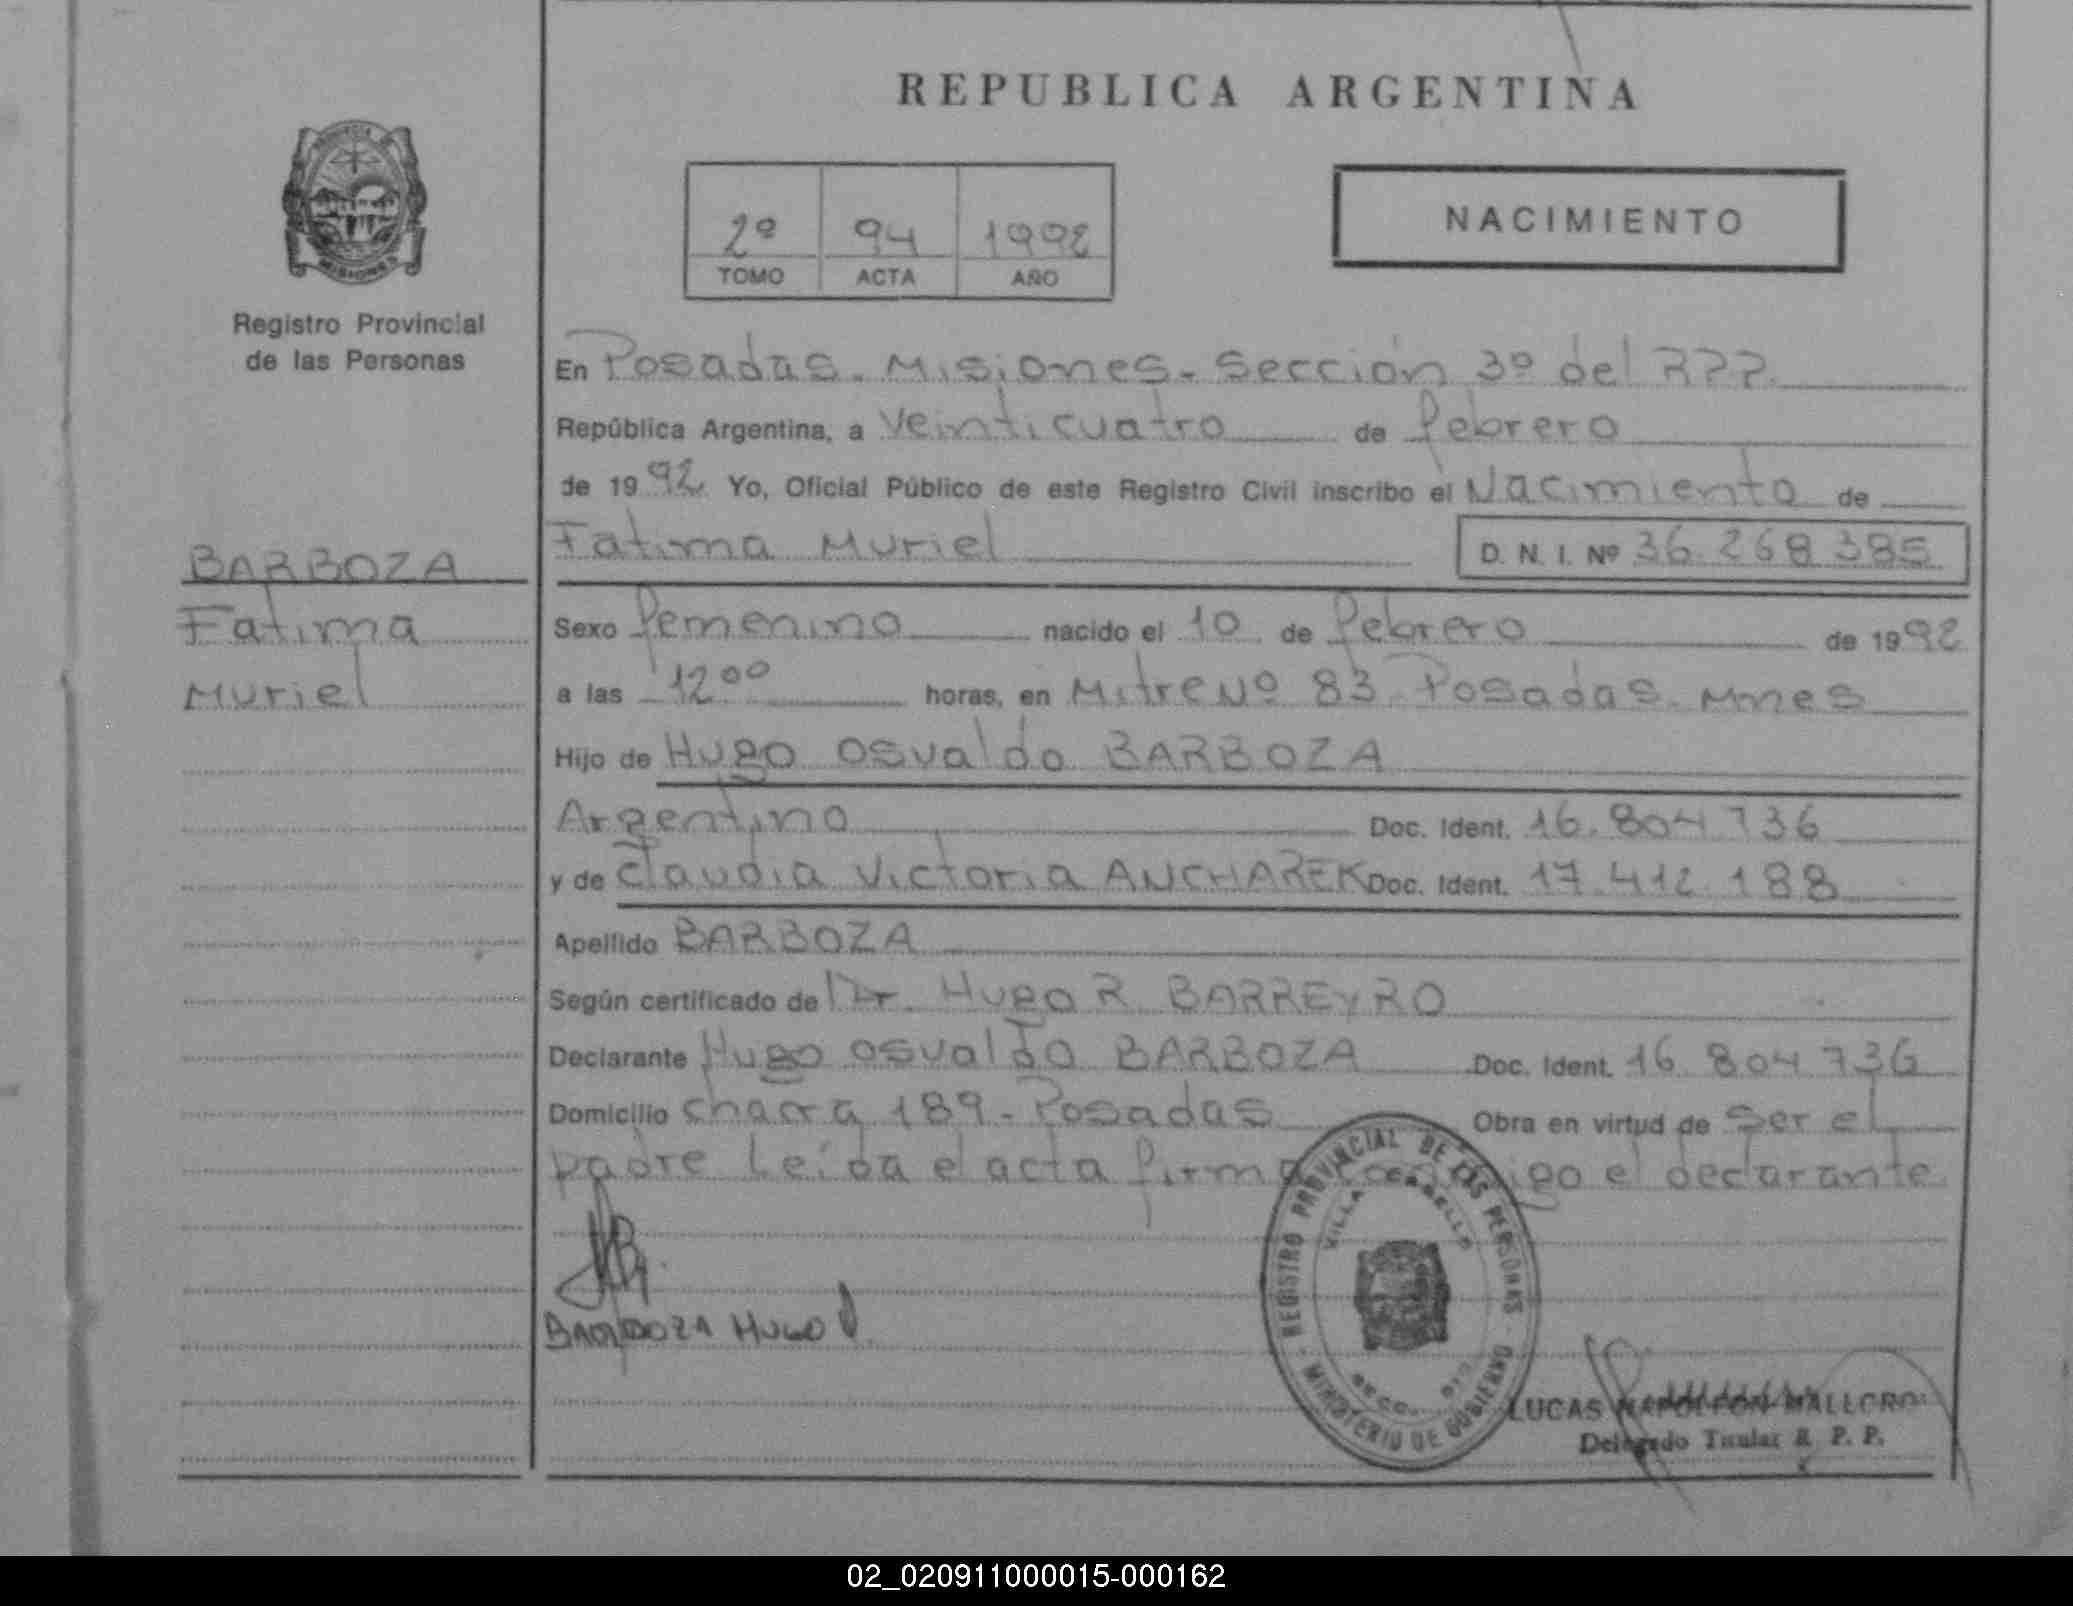 REPUBLICA ARGENTINA
2º 94 1992
TOMO ACTA AÑO
NACIMIENTO
MISIONES
Registro Provincial
de las Personas
BARBOZA
Fatima
Muriel
En Posadas. Misiones. Sección 3º del RPP.
República Argentina, a Veinticuatro de febrero
de 1992 Yo, Oficial Público de este Registro Civil inscribo el Nacimiento de
Fatima Muriel D. N. I. Nº 36.268.385
Sexo femenino nacido el 10 de febrero de 1992
a las 12ºº horas, en Mitre Nº 83 Posadas. Mnes
Hijo de Hugo Osvaldo BARBOZA
Argentino Doc. Ident. 16.804.736
y de Claudia Victoria ANCHAREK Doc. Ident. 17.412.188
Apellido BARBOZA
Según certificado de Dr. Hugo R BARREYRO
Declarante Hugo Osvaldo BARBOZA Doc. Ident. 16.804.736
Domicilio Chacra 189 - Posadas Obra en virtud de Ser el
padre Leída el acta firma conmigo el declarante
BARBOZA HUGO
REGISTRO PROVINCIAL DE LAS PERSONAS
VILLA CABELLO
MINISTERIO DE GOBIERNO
LUCAS NAPOLEON
Delegado Titular R. P. P.
02_020911000015-000162